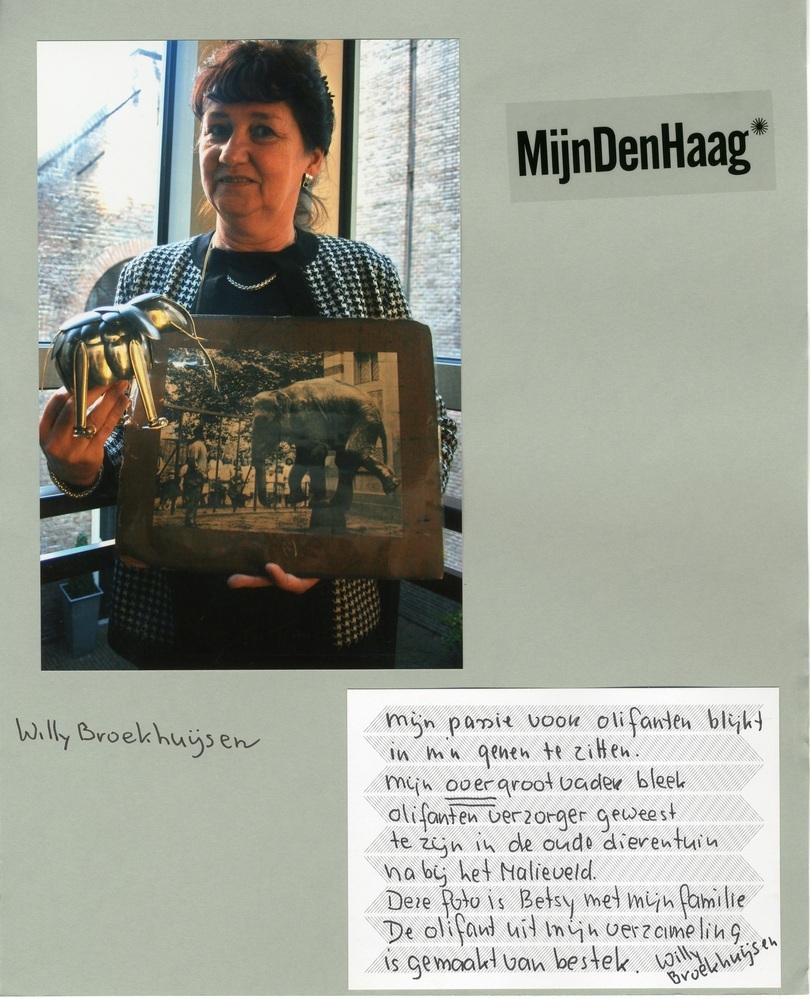 MijnDenHaag*
Willy Broekhuijsen
mijn passie voor olifanten blijkt
in m'n genen te zitten.
mijn overgrootvader bleek
olifanten verzorger geweest
te zijn in de oude dierentuin
nabij het Malieveld.
Deze foto is Betsy met mijn familie
De olifant uit mijn verzameling
is gemaakt van bestek.
Willy
Broekhuijsen